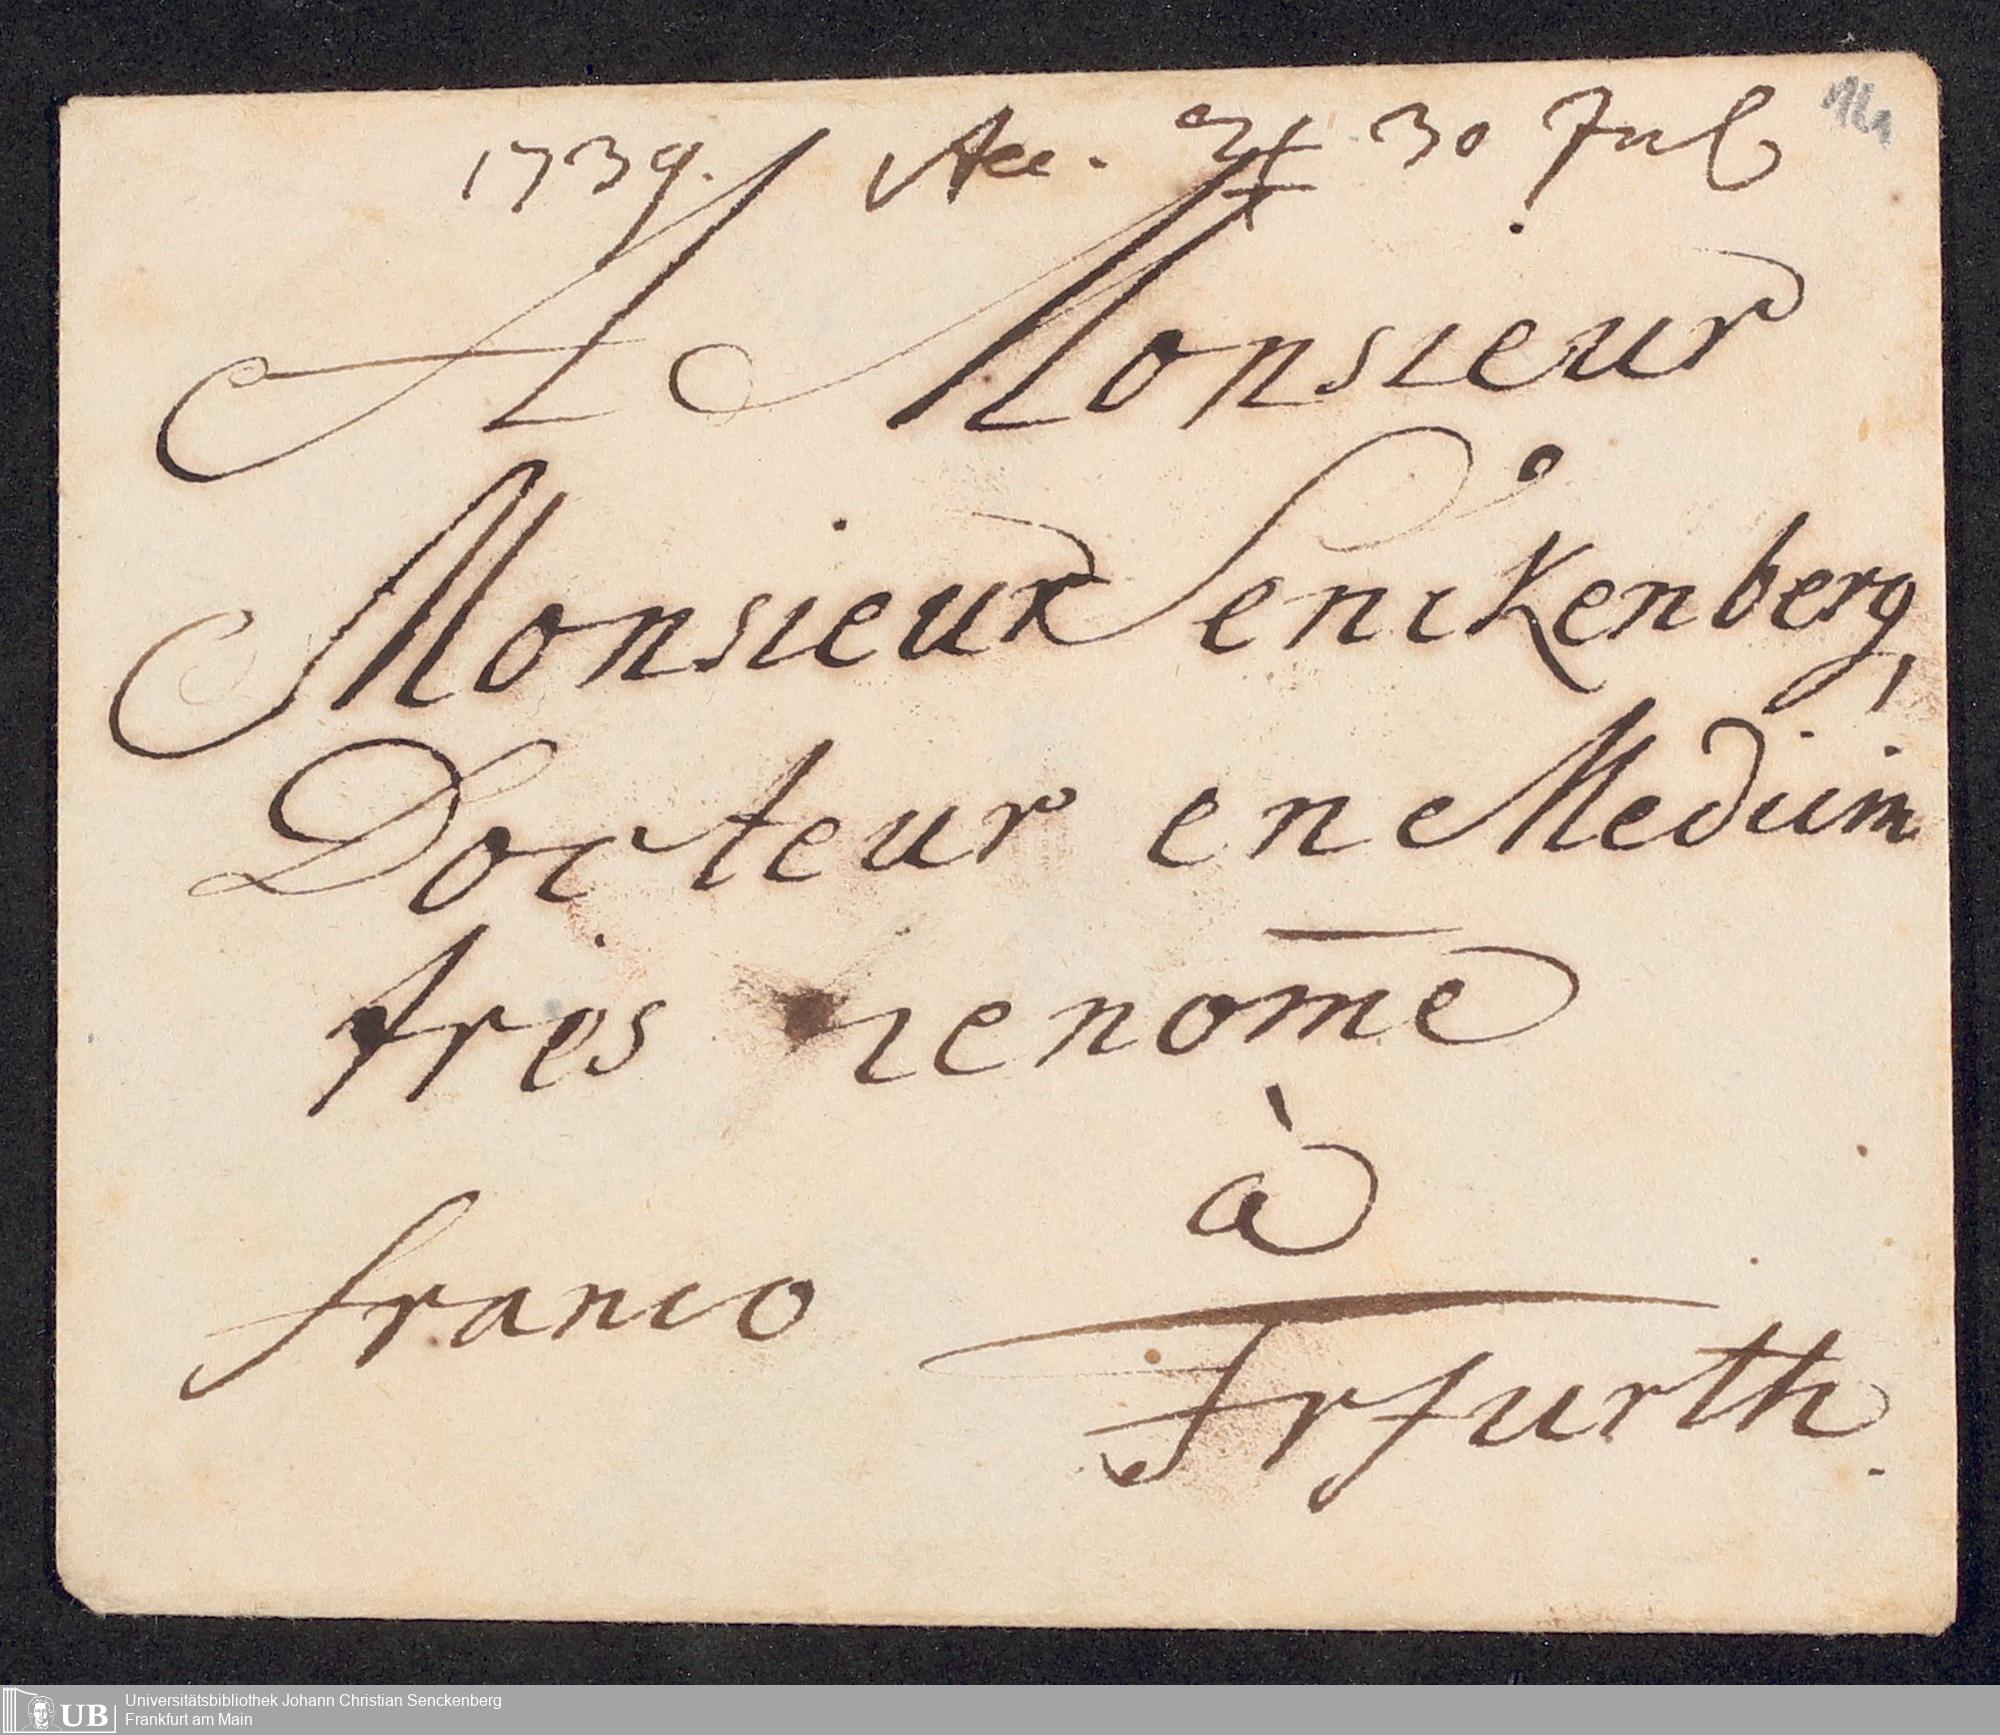 1739. Acc. ♃ 30 Jul
A Monsieur
Monsieur Senckenberg,
Docteur en Medicin
tres renom̅e
à
franco
Erfurth.
UB Universitätsbibliothek Johann Christian Senckenberg
Frankfurt am Main